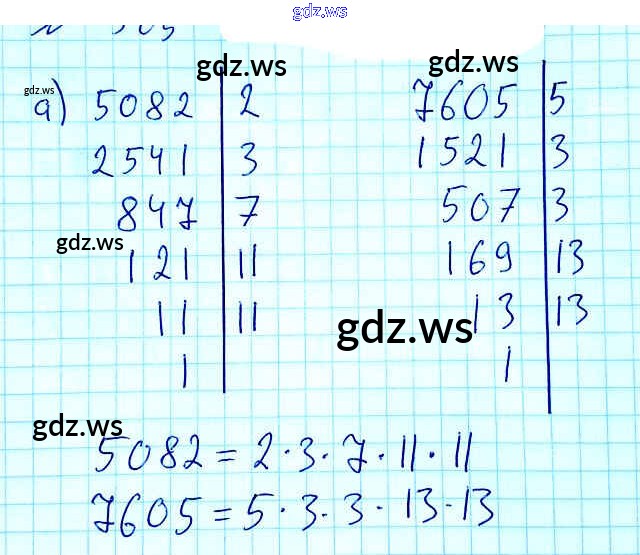 gdz.ws
gdz.ws gdz.ws
gdz.ws
а) 5082 | 2 7605 | 5
2541 | 3 1521 | 3
847 | 7 507 | 3
gdz.ws
121 | 11 169 | 13
11 | 11 13 | 13
gdz.ws
1 | 1 |
gdz.ws
5082 = 2 · 3 · 7 · 11 · 11
7605 = 5 · 3 · 3 · 13 · 13